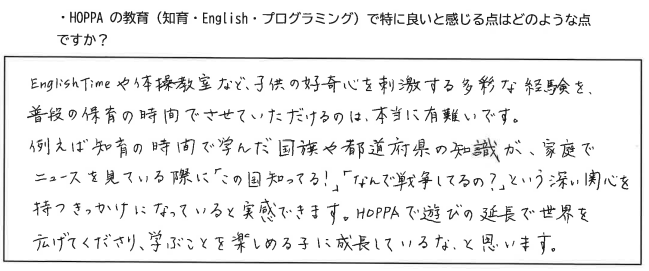 ・HOPPA の教育（知育・English・プログラミング）で特に良いと感じる点はどのような点
ですか？
EnglishTimeや体操教室など、子供の好奇心を刺激する多彩な経験を、
普段の保育の時間でさせていただけるのは、本当に有難いです。
例えば知育の時間で学んだ国旗や都道府県の知識が、家庭で
ニュースを見ている際に「この国知ってる！」「なんで戦争してるの？」という深い関心を
持つきっかけになっていると実感できます。HOPPAで遊びの延長で世界を
広げてくださり、学ぶことを楽しめる子に成長しているな、と思います。